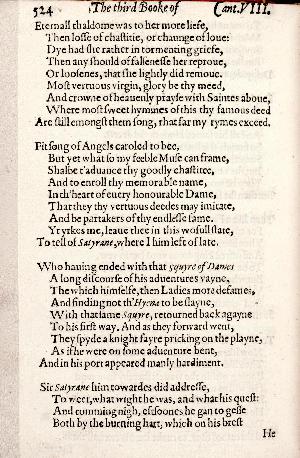 524 The third Booke of Cant. VIII.
Eternall thraldome was to her more liefe,
Then losse of chastitie, or chaunge of loue:
Dye had she rather in tormenting griefe,
Then any should of falsenesse her reproue,
Or loosenes, that she lightly did remoue.
Most vertuous virgin, glory be thy meed,
And crowne of heauenly prayse with Saintes aboue,
Where most sweet hymmes of this thy famous deed
Are still emongst them song, that far my rymes exceed.
Fit song of Angels caroled to bee,
But yet what so my feeble Muse can frame,
Shalbe t'aduance thy goodly chastitee,
And to enroll thy memorable name,
In th'heart of euery honourable Dame,
That they thy vertuous deedes may imitate,
And be partakers of thy endlesse fame.
Yt yrkes me, leaue thee in this wofull state,
To tell of Satyrane, where I him left of late.
Who hauing ended with that squyre of Dames
A long discourse of his aduentures vayne,
The which himselfe, then Ladies more defames,
And finding not th'Hyena to be slayne,
With that same Squyre, retourned back agayne
To his first way. And as they forward went,
They spyde a knight fayre pricking on the playne,
As if he were on some aduenture bent,
And in his port appeared manly hardiment.
Sir Satyrane him towardes did addresse,
To weet, what wight he was, and what his quest:
And comming nigh, eftsoones he gan to gesse
Both by the burning hart, which on his brest
He